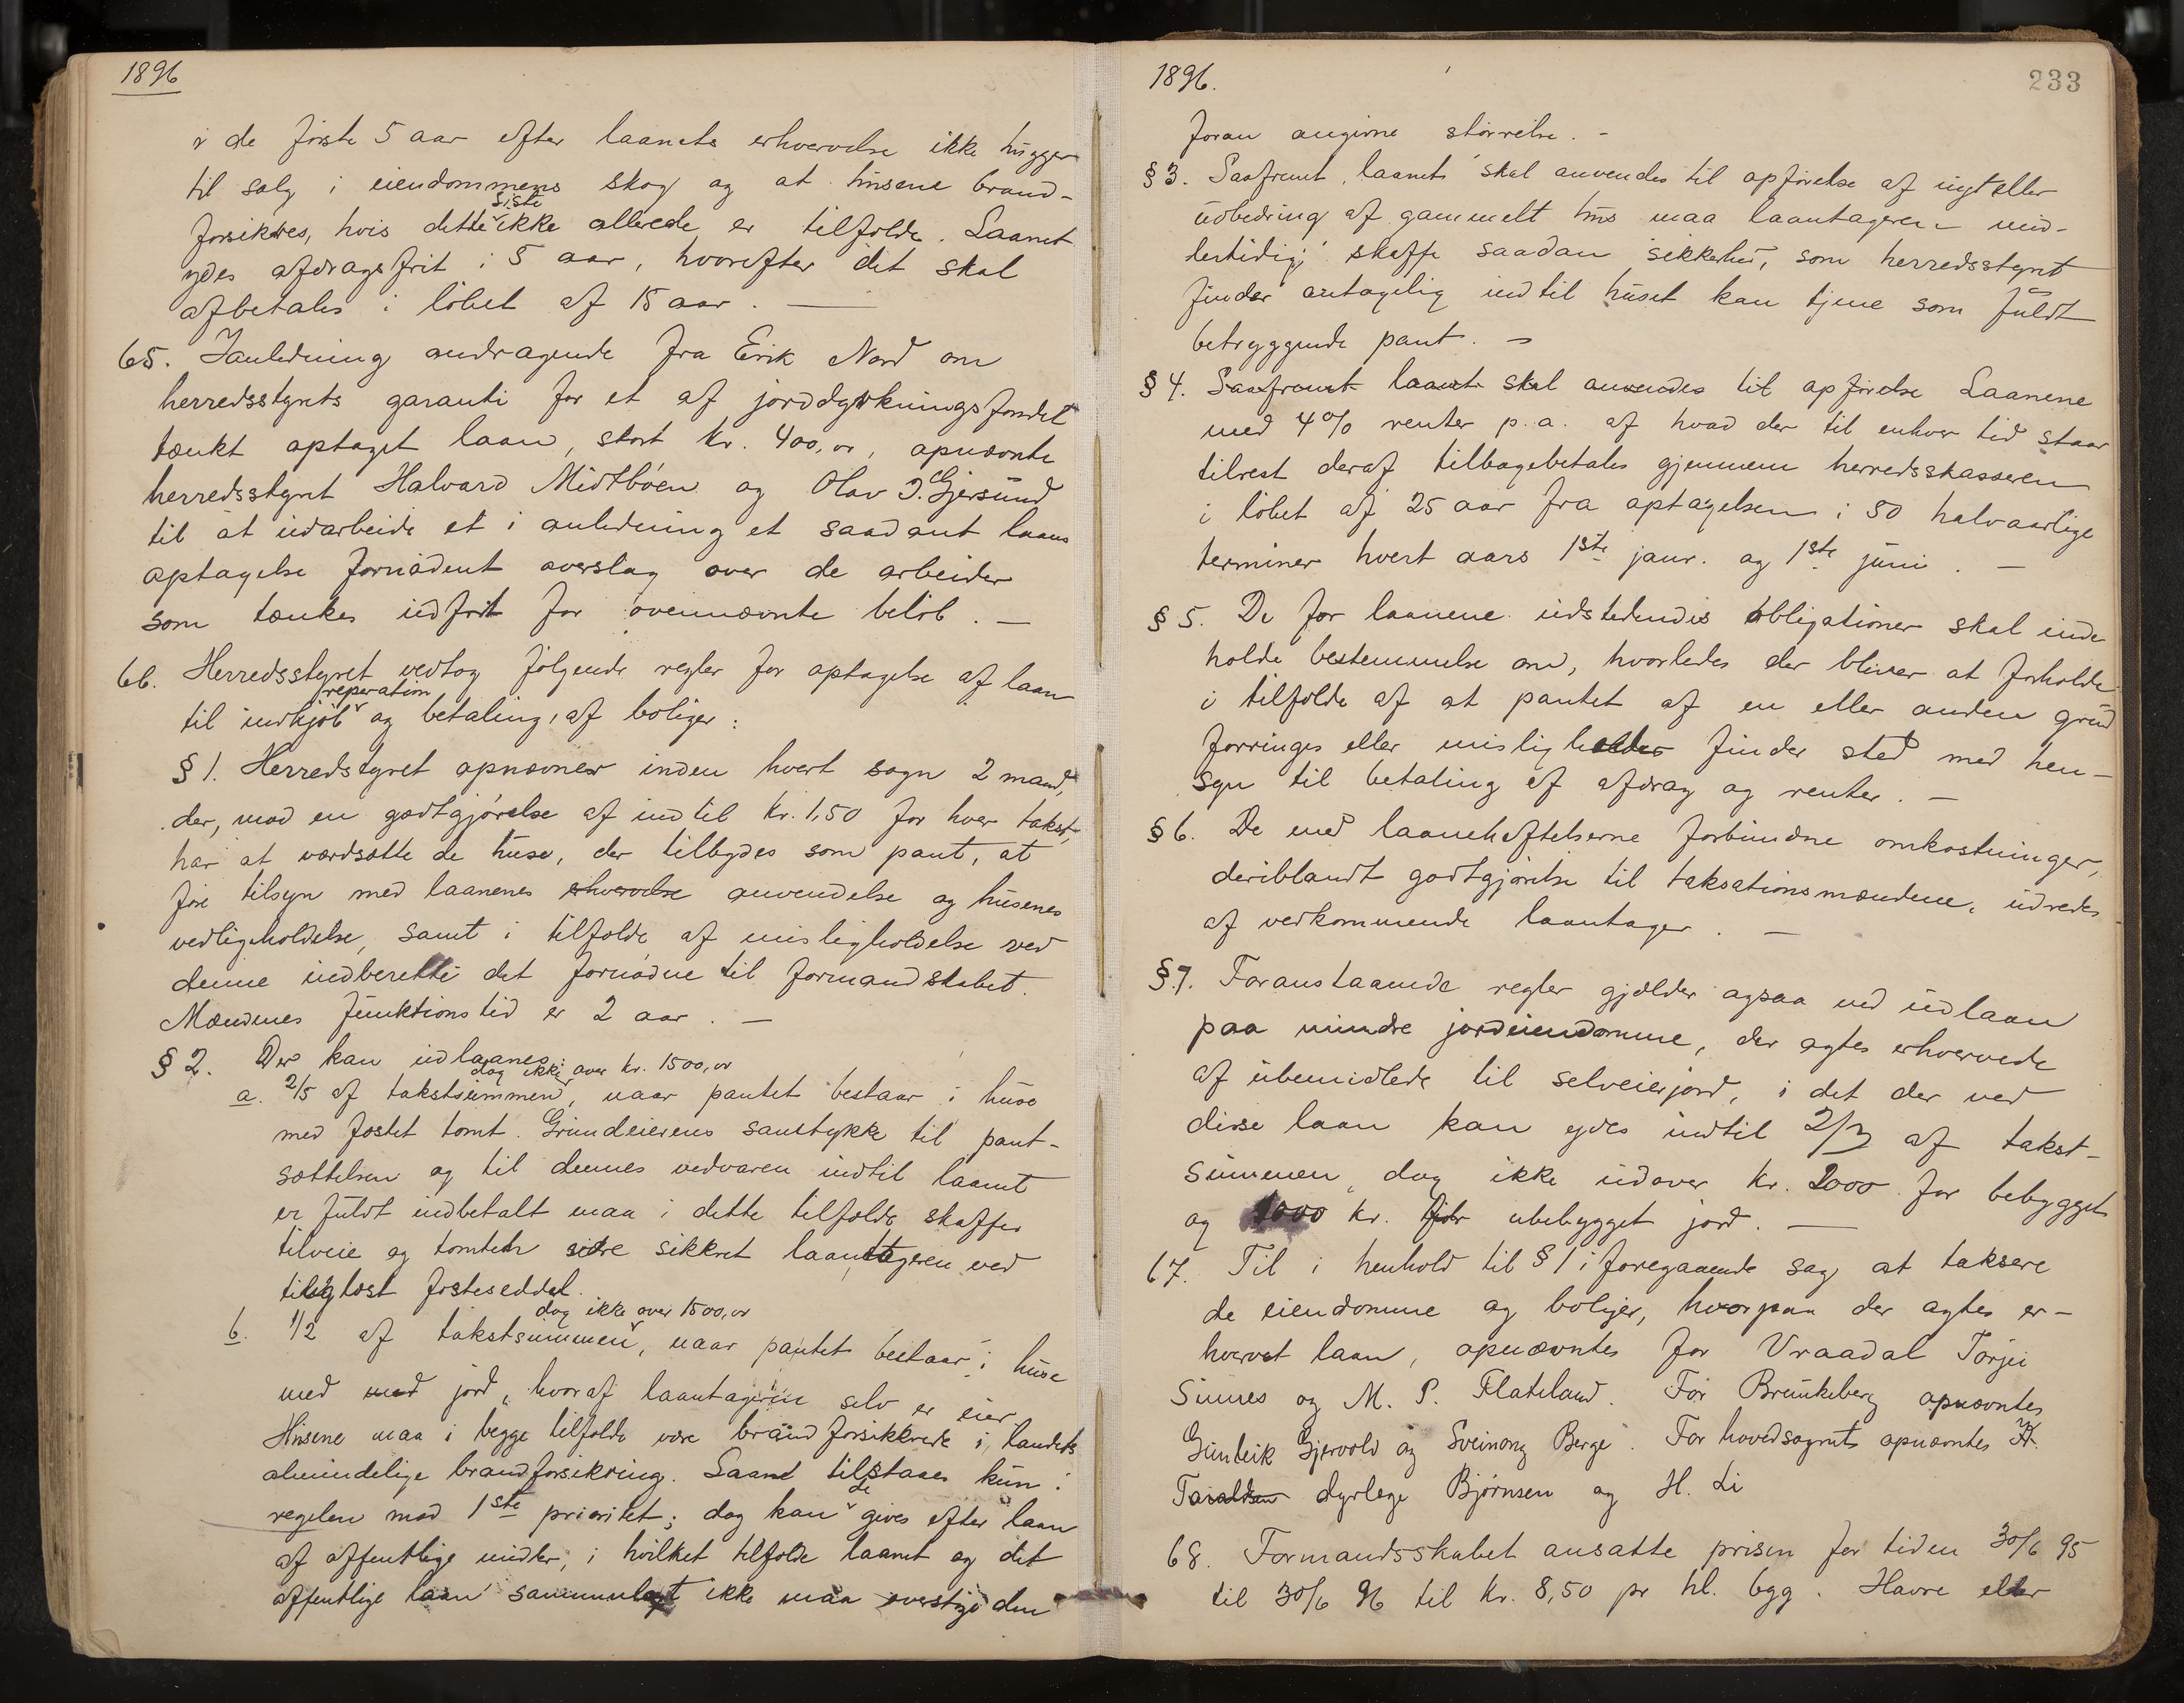 1896
i de første 5 aar efter laanets erhvervelse ikke hugger
til salg i eiendommens skog og at husene brand-
siste
forsikres, hvis dette ikke allerede er tilfælde. Laanet
ydes afdragsfrit i 5 aar, hvorefter det skal
afbetales i løbet af 15 aar. —
65. I anledning andragende fra Erik Nord om
herredsstyrets garanti for et af jorddyrkningsfondet
tænkt optaget laan, stort kr. 400,00, opnævnte
herredsstyret Halvard Midtbøen og Olav J. Gjersund
til at udarbeide et i anledning et saadant laans
optagelse fornødent overslag over de arbeider
som tænkes udført for ovennævnte beløb. —
66. Herredsstyret vedtog følgende regler for optagelse af laan
reperation
til indkjøb og betaling af boliger:
§ 1. Herredstyret opnævner inden hvert sogn 2 mænd,
der, mod en godtgjørelse af indtil kr. 1,50 for hver takst,
har at værdsætte de huse, der tilbydes som pant, at
føre tilsyn med laanenes erhvervelse anvendelse og husenes
vedligeholdelse, samt i tilfælde af misligholdelse ved
denne indberette det fornødne til formandskabet.
Mændenes funktionstid er 2 aar. —
§ 2. Der kan udlaanes:
dog ikke over kr. 1500,00
a. 2/5 af takstsummen, naar pantet bestaar i huse
med fæstet tomt. Grundeierens samtykke til pant-
sættelsen og til dennes vedvaren indtil laanet
er fuldt indbetalt maa i dette tilfælde skaffes
tilveie og tomten være sikkret laantageren ved
tinglæst fæsteseddel.
dog ikke over 1500,00
b. 1/2 af takstsummen, naar pantet bestaar i huse
med med jord, hvoraf laantageren selv er eier.
Husene maa i begge tilfælde være brandforsikkrede i landets
almindelige brandforsikring. Laanet tilstaaes kun i
de
regelen mod 1ste prioritet; dog kan gives efter laan
af offentlige midler, i hvilket tilfælde laanet og det
offentlige laan sammenlagt ikke maa overstige den
1896.
233
foran angivne størrelse. -
§ 3. Saafremt laanet skal anvendes til opførelse af nyt eller
udbedring af gammelt hus maa laantageren mid-
lertidig skaffe saadan sikkerhed, som herredsstyret
finder antagelig indtil huset kan tjene som fuldt
betryggende pant. —
§ 4. Saafremt laanet skal anvendes til opførelse Laanene
med 4% renter p.a. af hvad der til enhver tid staar
tilrest deraf tilbagebetales gjennem herredskasseren
i løbet af 25 aar fra optagelsen i 50 halvaarlige
terminer hvert aars 1ste janr. og 1ste juni. —
§ 5. De for laanene udstedendes obligationer skal inde
holde bestemmelse om, hvorledes der bliver at forholde
i tilfælde af at pantet af en eller anden grund
forringes eller misligholdes finder sted med hen-
syn til betaling af afdrag og renter. —
§ 6. De med laaneheftelserne forbundne omkostninger,
deriblandt godtgjørelse til taksationsmændene, udredes
af vedkommende laantager. —
§ 7. Foranstaaende regler gjælder ogsaa ved udlaan
paa mindre jordeiendomme, der agtes erhvervede
af ubemidlede til selveierjord, i det der ved
disse laan kan ydes indtil 2/3 af takst-
summen, dog ikke udover kr. 2000 for bebygget
og 1000 kr. for ubebygget jord. —
67. Til i henhold til § 1 i foregaaende sag at taksere
de eiendomme og boliger, hvorpaa der agtes er-
hvervet laan, opnævntes for Vraadal Torjei
Sinnes og M. P. Flateland. For Brunkeberg opnævntes
Gunleik Gjervold og Sveinong Berge. For hovedsognets opnævntes
Taraldsen dyrlæge Bjørnsen og H. Li
68. Formandsskabet ansatte prisen for tiden 30/6 95
til 30/6 96 til kr. 8,50 pr hl. byg. Havre eller